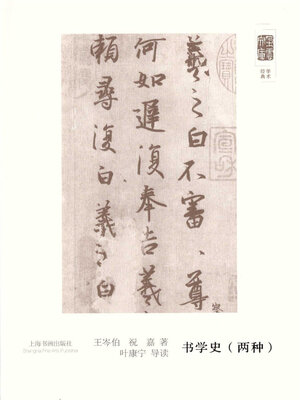 朵雲文庫
学术
经典
羲之白不審尊
何如遲復奉告羲
賴尋復白羲之白
上海书画出版社
Shanghai Fine Arts Publisher
王岑伯 祝嘉 著
叶康宁 导读
书学史（两种）